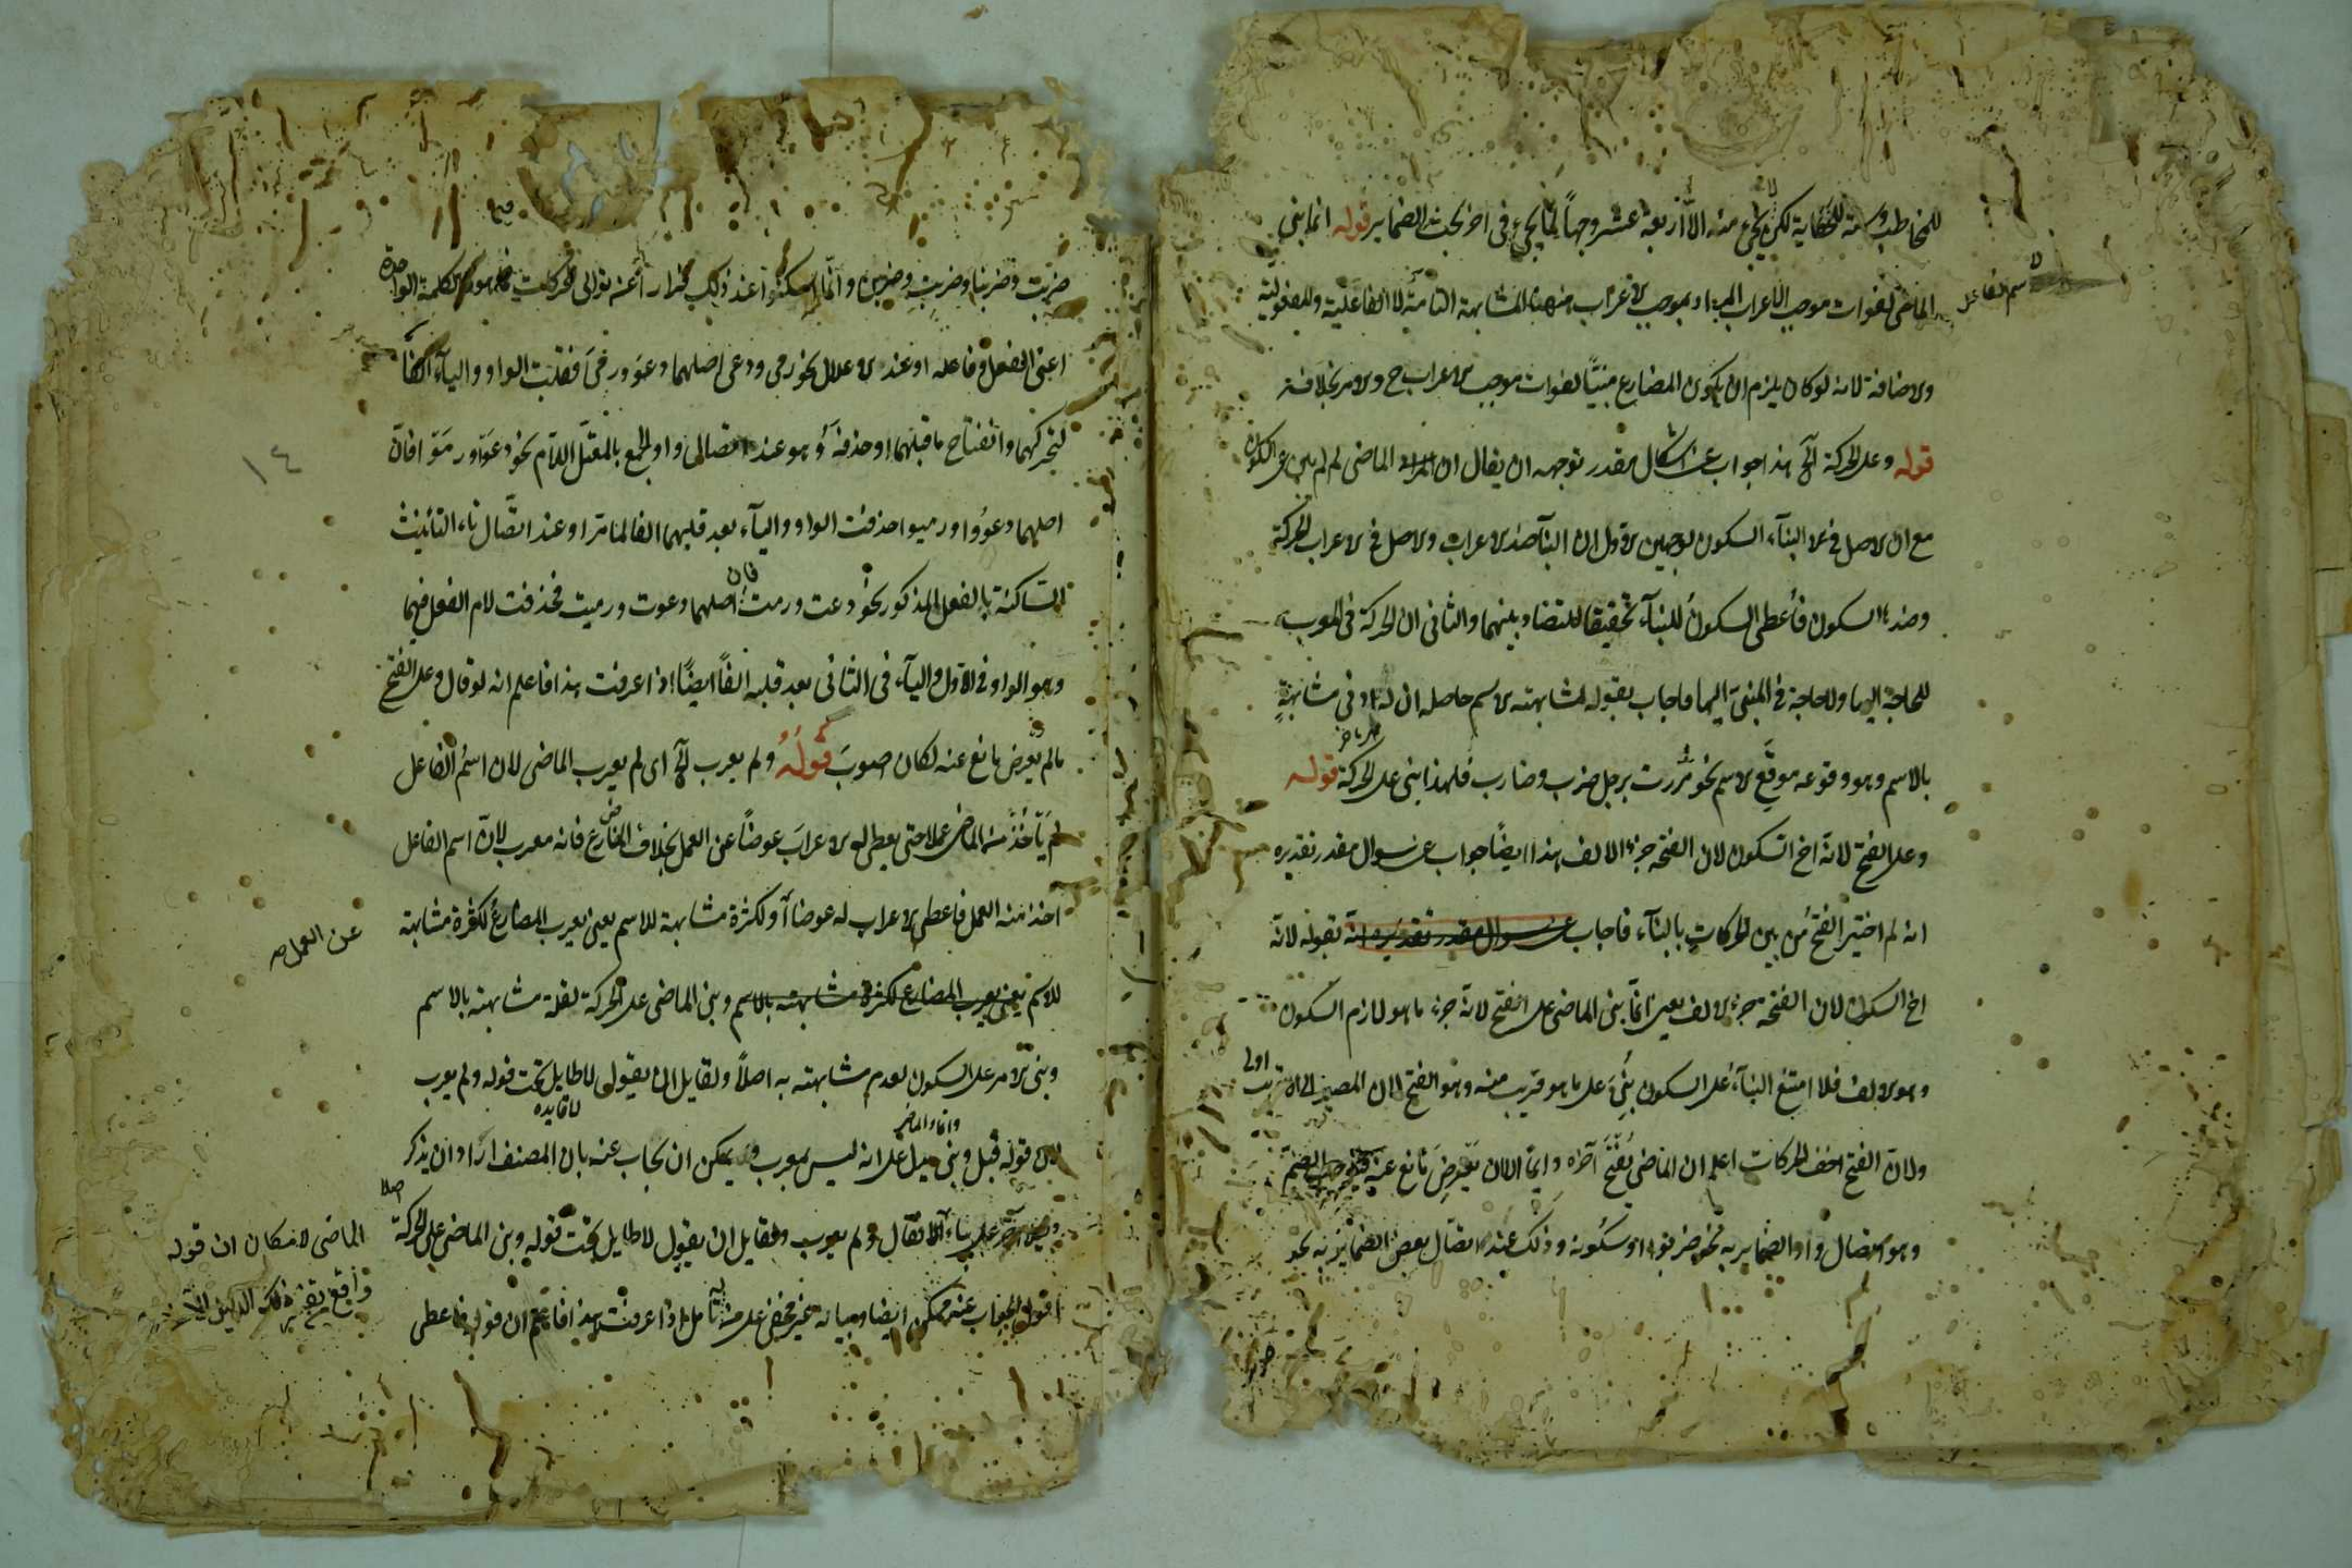 للمخاطب وستة للحكاية لكن لا يجئ منه الا اربعة عشر وجهاً لما يجئ في اخر بحث الضماير قوله انما بني
الماضي لفوات موجب الاعراب المراد بموجب الاعراب منها المشابهة التامة لا الفاعلية والمفعولية
لاسم الفاعل
والاضافة لانه لو كان يلزم ان يكون المضارع مبنيًا لفوات موجب الاعراب ح والامر بخلافه
قوله وعلى الحركة الخ هذا جواب عن اشكال مقدر توجيهه ان يقال ان الماضي لم لم يبن على السكون
مع ان الاصل في البناء السكون لوجهين الاول ان البناء ضد الاعراب والاصل في الاعراب الحركة
وضدها السكون فأعطى السكون للبناء تحقيقا للتضاد بينهما والثاني ان الحركة في المعرب
للحاجة اليها ولا حاجة في المبني اليها فاجاب بقوله لمشابهته الاسم حاصله ان له ادنى مشابهةٍ
بالاسم وهو وقوعه موقع الاسم نحو مررت برجل ضرب وضارب فلهذا بني على الحركة قوله
وعلى الفتح لانه اخ السكون لان الفتحة جزء الالف هذا ايضًا جواب عن سوال مقدر تقديره
انه لم اختير الفتح من بين الحركات بالبناء فاجاب عن سوال مقدر تقديره انه بقوله لانه
اخ السكون لان الفتحة جزء الالف يعني انما بني الماضي على الفتح لانه جزء ما هو لازم السكون
وهو الالف فلما امتنع البناء على السكون بنئ على ما هو قريب منه وهو الفتح لان المصير الى الاقرب اولى
ولان الفتح اخف الحركات اعلم ان الماضي يفتح آخره دايمًا الا ان يعرض مانع عنه الضم
وهو اتصال واو الضماير به نحو ضربوا او سكونه وذلك عند اتصال بعض الضماير به نحو
ضربت وضربنا وضربتِ وضربن وانما اسكنوا عند ذلك فرارا عن توالى الحركات فيما هو كالكلمة الواحدة
اعني الفعل وفاعله او عند الاعلال نحو رمى ودعى اصلهما دعو ورمى فقلبت الواو والياء الفا
لتحركهما وانفتاح ما قبلهما او حذفه وهو عند اتصال واو الجمع بالمعتل اللام نحو دعوا ورموا فان
١٤
اصلهما دعوُوا ورميوا حذفت الواو والياء بعد قلبهما الفا لما مر او عند اتصال تاء التانيث
الساكنة بالفعل المذكور نحو دعت ورمت فان اصلهما دعوت ورميت فحذفت لام الفعل فيهما
وهو الواو في الاول والياء في الثاني بعد قلبه الفًا ايضًا اذا عرفت هذا فاعلم انه لو قال وعلى الفتح
مالم يعرض مانع عنه لكان اصوب قوله ولم يعرب الخ اى لم يعرب الماضي لان اسم الفاعل
لم يأخذ منه الماضي عملا حتى يعطى له الاعراب عوضًا عن العمل بخلاف المضارع فانه معرب لان اسم الفاعل
اخذ منه العمل فاعطى الاعراب له عوضا او لكثرة مشابهة للاسم يعني يعرب المضارع لكثرة مشابهته
عن العمل صح
للاسم يعني يعرب المضارع لكثرة مشابهته بالاسم وبني الماضي على الحركة لقلة مشابهته بالاسم
وبني الامر على السكون لعدم مشابهته به اصلاً ولقايل ان يقول لا طايل تحت قوله ولم يعرب
لا فايده
لان قوله قبل وبني يدل على انه ليس بمعرب ويمكن ان يجاب عنه بان المصنف اراد ان يذكر
ولم يعرب ولقايل ان يقول لا طايل تحت قوله وبني الماضي على الحركة اصلا
الماضي لامكان ان قوله
اقول الجواب عنه ممكن ايضا وبيانه غير مخفى على من تأمل اذا عرفت هذا فاعلم ان قوله فاعطى